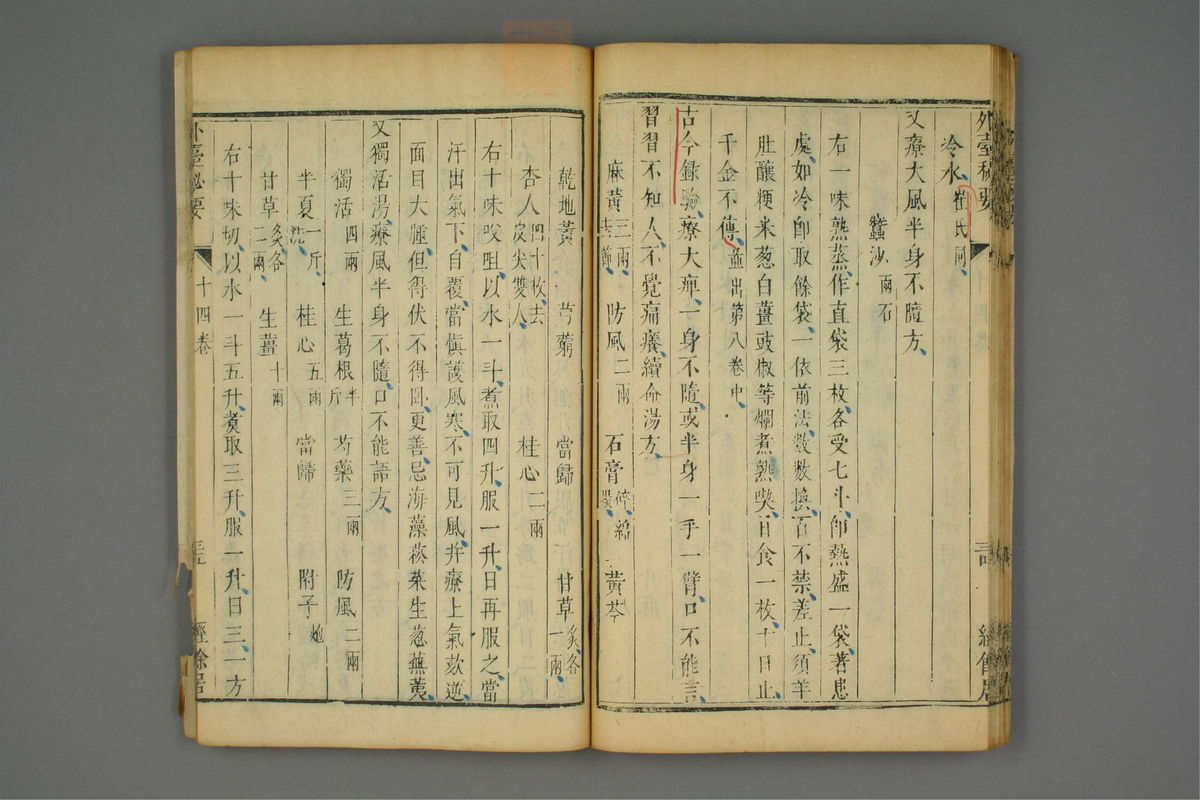 外臺秘要
冷水崔氏同
又療大風半身不隨方
蠶沙兩石
右一味熟蒸作直袋三枚各受七斗卽熱盛一袋著患
處如冷卽取餘袋一依前法數數換百不禁差止須羊
肚釀粳米葱白薑豉椒等爛煮熟喫日食一枚十日止
千金不傳並出第八卷中
古今錄驗療大痹一身不隨或半身一手一臂口不能言
習習不知人不覺痛癢續命湯方
麻黃三兩去節 防風二兩 石膏碎綿裹 黃芩
乾地黃 芎藭 當歸 甘草炙各一兩
杏人四十枚去皮尖雙人 桂心二兩
右十味㕮咀以水一斗煮取四升服一升日再服之當
汗出氣下自覆當愼護風寒不可見風幷療上氣欬逆
面目大腫但得伏不得臥更善忌海藻菘菜生葱蕪荑
又獨活湯療風半身不隨口不能語方
獨活四兩 生葛根半斤 芍藥三兩 防風二兩
半夏一斤洗 桂心五兩 當歸 附子炮
甘草炙各二兩 生薑十兩
右十味切以水一斗五升煮取三升服一升日三一方
外臺祕要 十四卷 經餘居